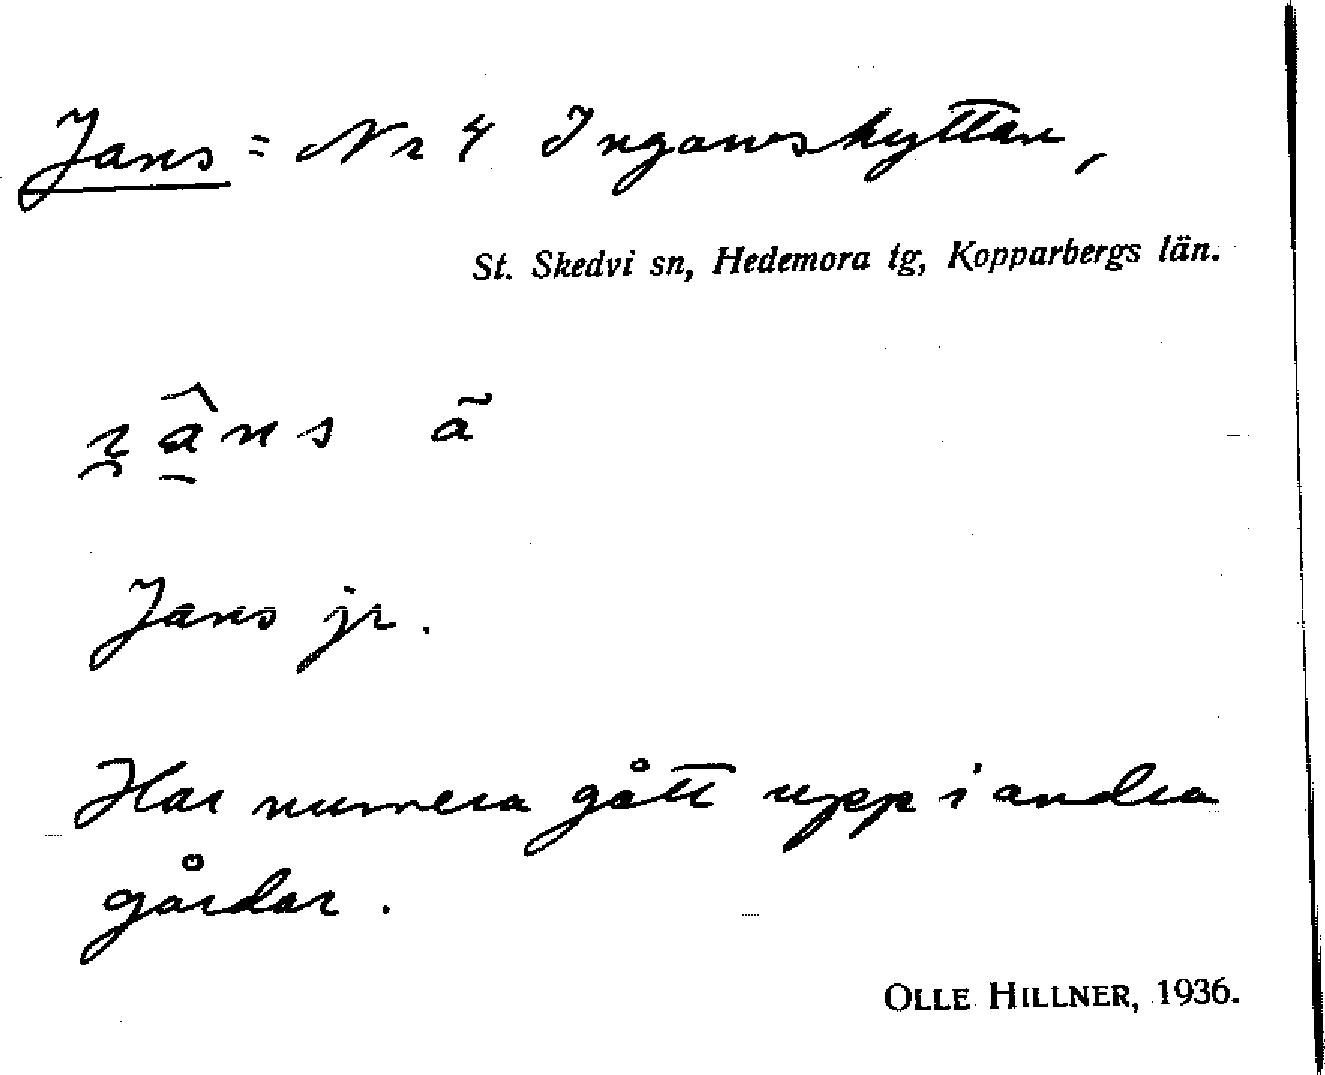 Jans = Nr 4 Ingarvshyttan,
St. Skedvi sn, Hedemora tg, Kopparbergs län.
Jans jr.
Har numera gått upp i andra
gårdar.
OLLE HILLNER, 1936.